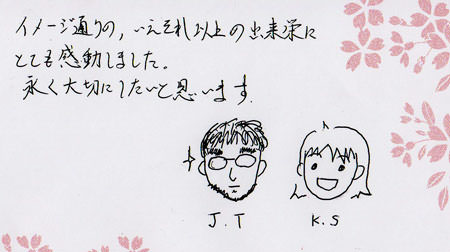 イメージ通りの,いえそれ以上の出来栄に
とても感動しました。
永く大切にしたいと思います.
J.T K.S